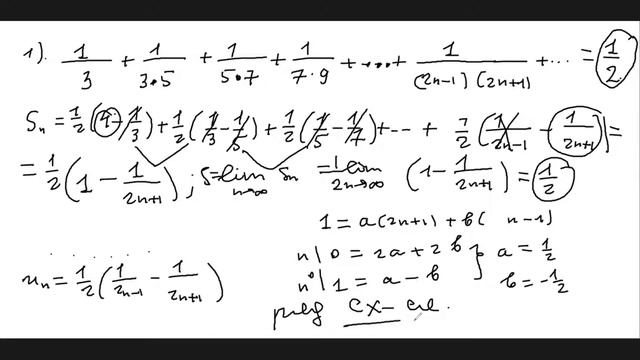 1). 1/3 + 1/(3·5) + 1/(5·7) + 1/(7·9) + ... + 1/((2n-1)(2n+1)) + ... = 1/2
Sn = 1/2(1 - 1/3) + 1/2(1/3 - 1/5) + 1/2(1/5 - 1/7) + ... + 1/2(1/(2n-1) - 1/(2n+1)) =
= 1/2(1 - 1/(2n+1)); S = lim n→∞ Sn = 1/2 lim n→∞ (1 - 1/(2n+1)) = 1/2
1 = a(2n+1) + b( n-1)
n | 0 = 2a + 2b } a = 1/2
n⁰ | 1 = a - b } b = -1/2
un = 1/2(1/(2n-1) - 1/(2n+1))
ряд сх-ся.